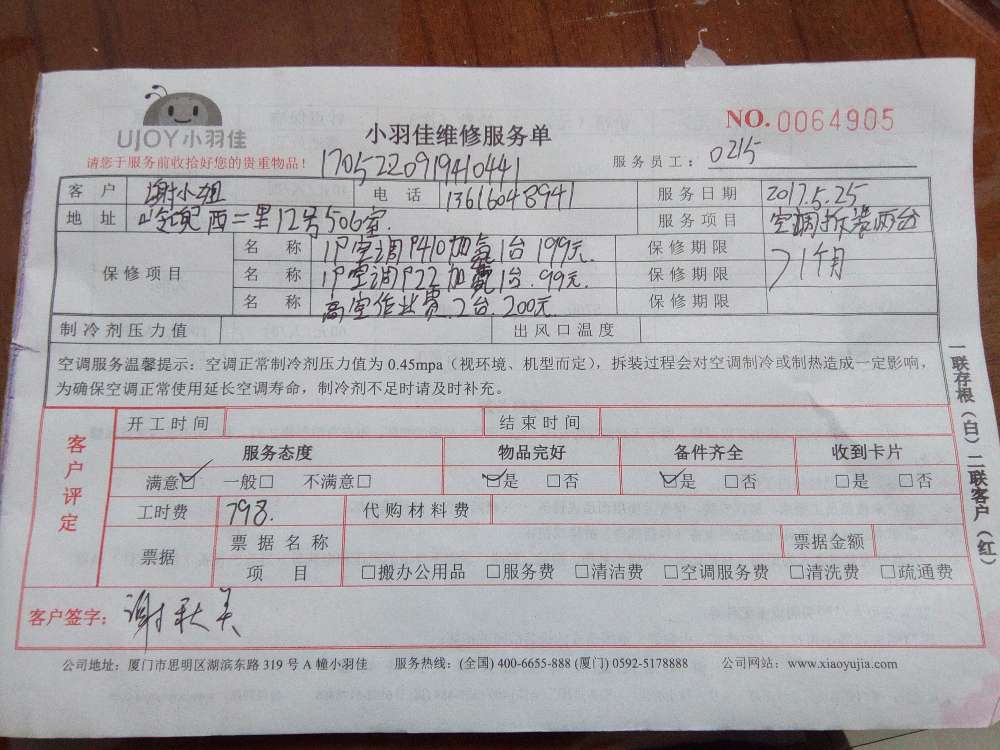 UJOY小羽佳
小羽佳维修服务单
NO. 0064905
请您于服务前收拾好您的贵重物品！
1705220919410441
服务员工： 0215
客户 谢小姐 电话 13616048941 服务日期 2017.5.25
地址 西二里12号506室 服务项目 空调拆装两台
保修项目
名称 1P空调P410加氟1台 199元. 保修期限
名称 1P空调P22加氟1台. 99元. 保修期限 1个月
名称 高空作业费.2台.200元. 保修期限
制冷剂压力值 出风口温度
空调服务温馨提示：空调正常制冷剂压力值为 0.45mpa（视环境、机型而定），拆装过程会对空调制冷或制热造成一定影响，
为确保空调正常使用延长空调寿命，制冷剂不足时请及时补充。
客户评定
开工时间 结束时间
服务态度 物品完好 备件齐全 收到卡片
满意☑ 一般□ 不满意□ ☑是 □否 ☑是 □否 □是 □否
工时费 798. 代购材料费
票据 票据名称 票据金额
项目 □搬办公用品 □服务费 □清洁费 □空调服务费 □清洗费 □疏通费
客户签字： 谢秋美
一联存根（白）二联客户（红）
公司地址：厦门市思明区湖滨东路 319 号 A 幢小羽佳 服务热线：(全国) 400-6655-888 (厦门) 0592-5178888 公司网站：www.xiaoyujia.com